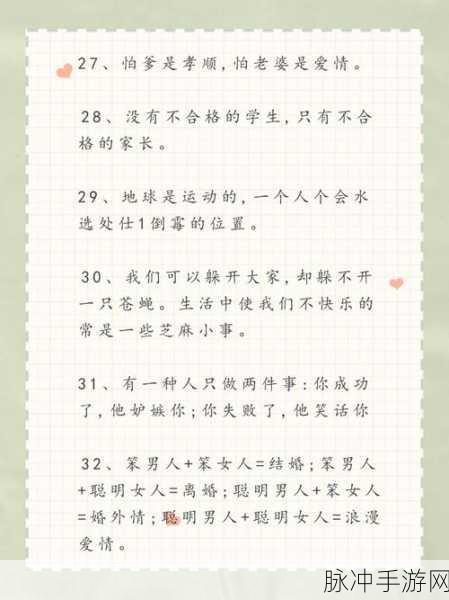 27、怕爹是孝顺,怕老婆是爱情。
28、没有不合格的学生,只有不合
格的家长。
29、地球是运动的,一个人个会水
选处仕1倒霉的位置。
30、我们可以躲开大家,却躲不开
一只苍蝇。生活中使我们不快乐的
常是一些芝麻小事。
31、有一种人只做两件事:你成功
了,他妒嫉你;你失败了,他笑话你
32、笨男人+笨女人=结婚;笨男人
+聪明女人=离婚;聪明男人+笨女人
=婚外情;聪明男人+聪明女人=浪漫
爱情。
脉冲手游网